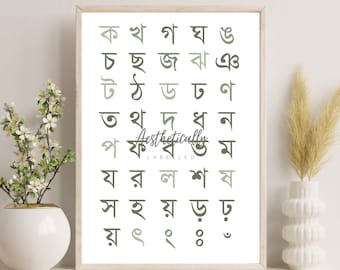 ক খ গ ঘ ঙ
চ ছ জ ঝ ঞ
ট ঠ ড ঢ ণ
ত থ দ ধ ন
Aesthetically
LABELLED
প ফ ব ভ ম
য র ল শ ষ
স হ য় ড় ঢ়
য় ৎ ং ঃ ঁ